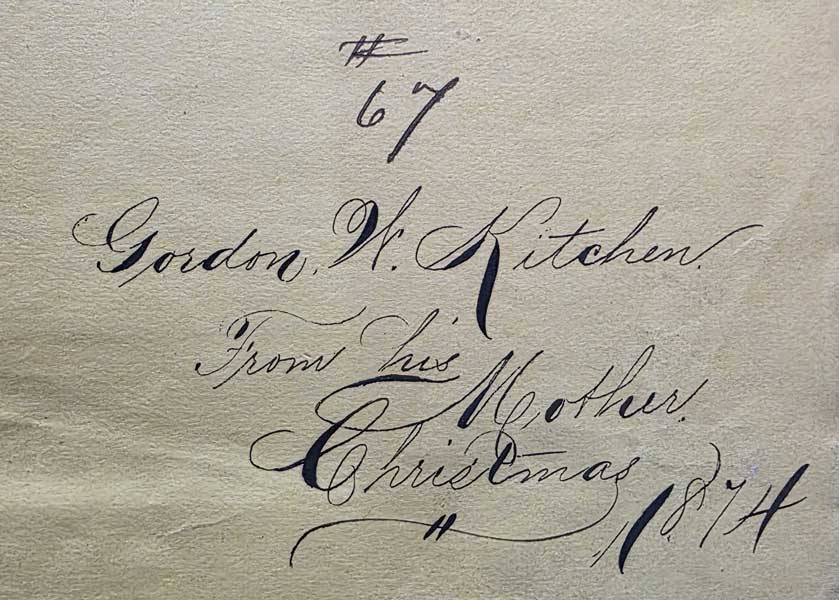 #
67
Gordon. W. Kitchen.
From his
Mother.
Christmas
1874